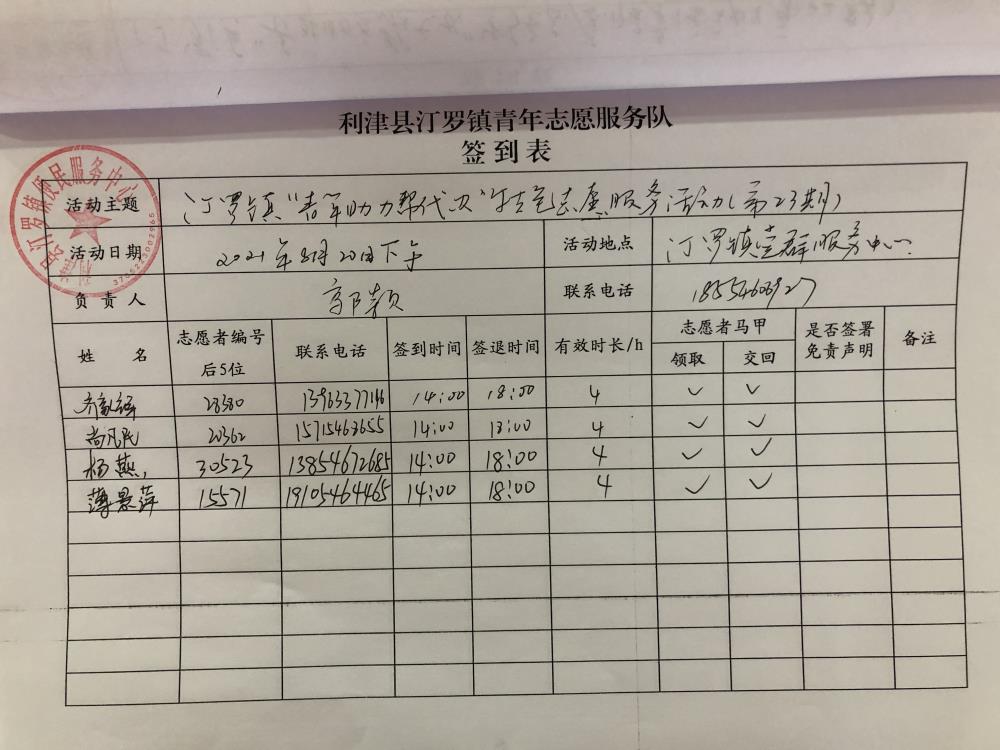 利津县汀罗镇青年志愿服务队
签到表
活动主题 汀罗镇"青年助力帮代办"特色志愿服务活动(第23期)
活动日期 2021年8月20日下午 活动地点 汀罗镇党群服务中心
负责人 郭颖 联系电话 18554606927
姓名 志愿者编号后5位 联系电话 签到时间 签退时间 有效时长/h 志愿者马甲 是否签署免责声明 备注
领取 交回
28380 13963377146 14:00 18:00 4 ✓ ✓
尚凡民 20362 15715463655 14:00 18:00 4 ✓ ✓
杨燕 30523 13854672685 14:00 18:00 4 ✓ ✓
薄景萍 15571 19105464465 14:00 18:00 4 ✓ ✓
汀罗镇便民服务中心